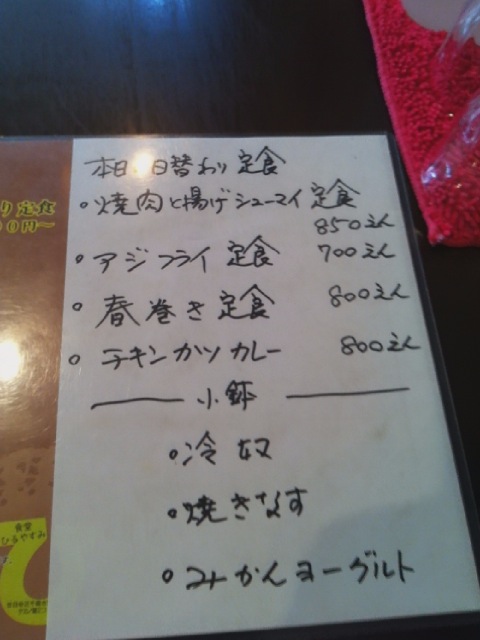 本日の日替わり定食
・焼肉と揚げシューマイ定食
850えん
・アジフライ定食 700えん
・春巻き定食 800えん
・チキンカツカレー 800えん
小鉢
・冷奴
・焼きなす
・みかんヨーグルト
り定食
00円〜
食堂
ひるやすみ